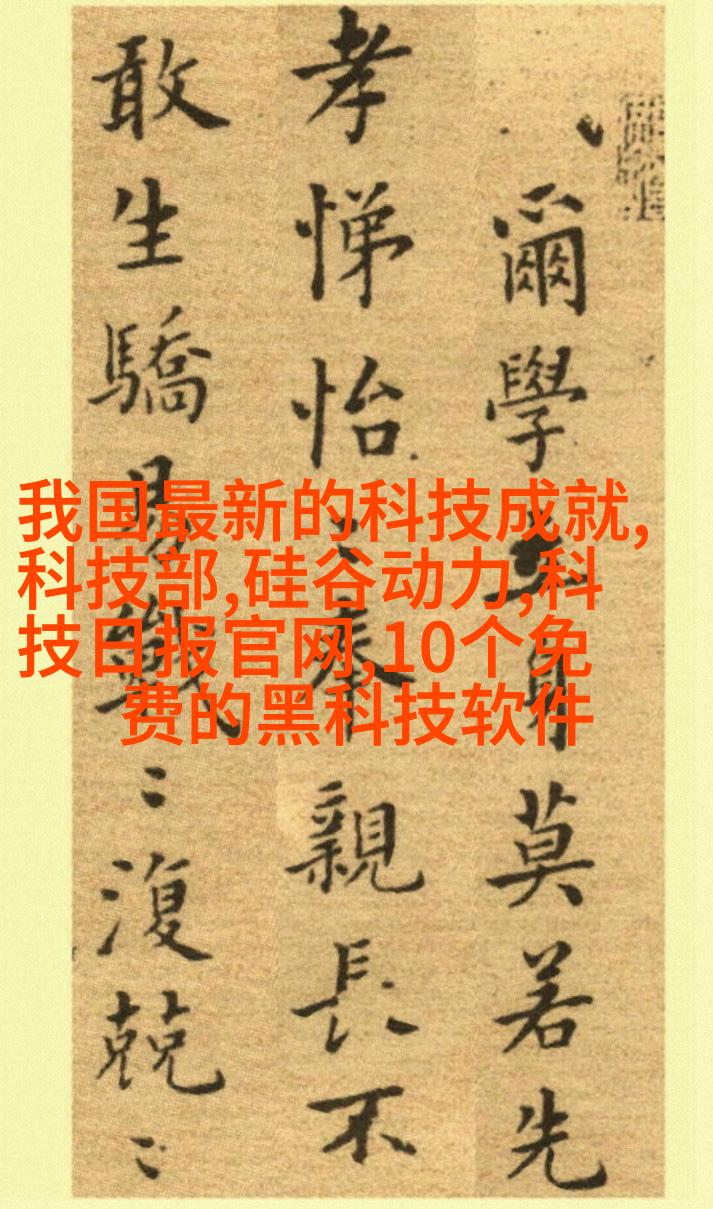 爾學立身莫若先
孝悌怡〻奉親長不
敢生驕易戰〻復兢〻
我国最新的科技成就,
科技部,硅谷动力,科
技日报官网,10个免
费的黑科技软件